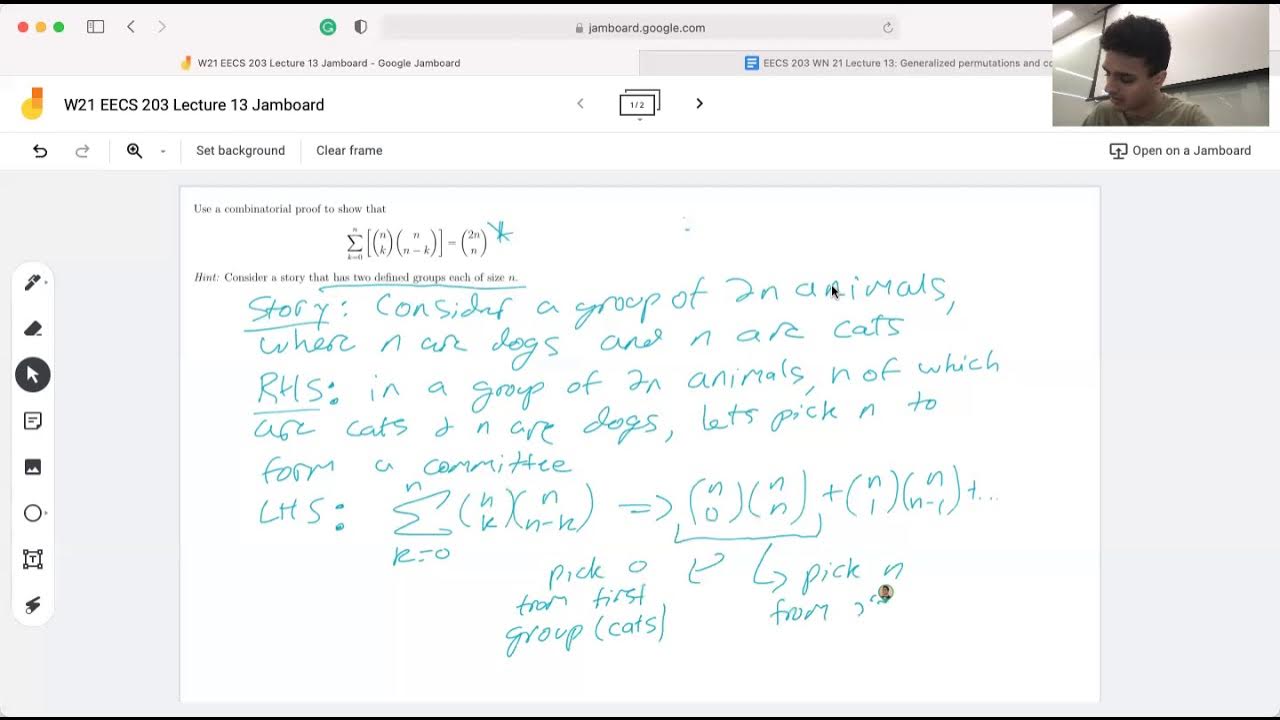 jamboard.google.com
W21 EECS 203 Lecture 13 Jamboard - Google Jamboard
EECS 203 WN 21 Lecture 13: Generalized permutations and co
W21 EECS 203 Lecture 13 Jamboard
1/2
Set background
Clear frame
Open on a Jamboard
Use a combinatorial proof to show that
n
∑ [(n k)(n n − k)] = (2n n) *
k=0
Hint: Consider a story that has two defined groups each of size n.
Story: Consider a group of 2n animals,
where n are dogs and n are cats
RHS: in a group of 2n animals, n of which
are cats & n are dogs, lets pick n to
form a committee
LHS: n ∑ k=0 (n k)(n n-k) => (n 0)(n n) + (n 1)(n n-1) + ...
pick 0
from first
group (cats)
pick n
from